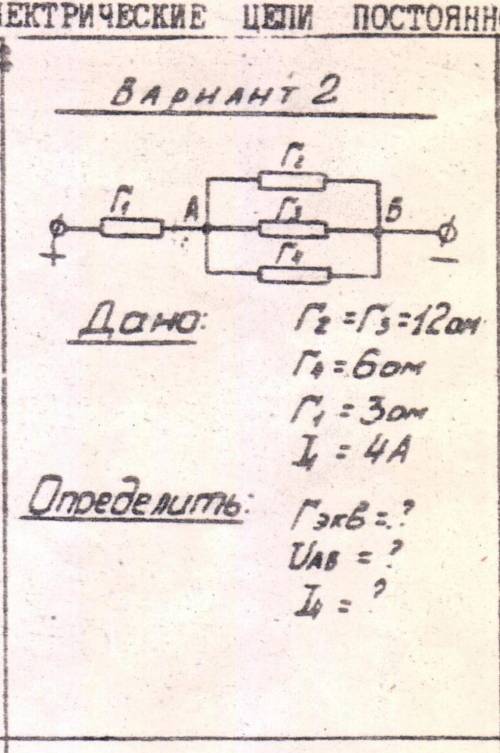 ЛЕКТРИЧЕСКИЕ ЦЕПИ ПОСТОЯНН
Вариант 2
r₂
r₁ А r₃ Б
r₄
+ −
Дано: r₂ = r₃ = 12 ом
r₄ = 6 ом
r₁ = 3 ом
I₁ = 4 А
Определить: rэкв = ?
UАВ = ?
I₄ = ?